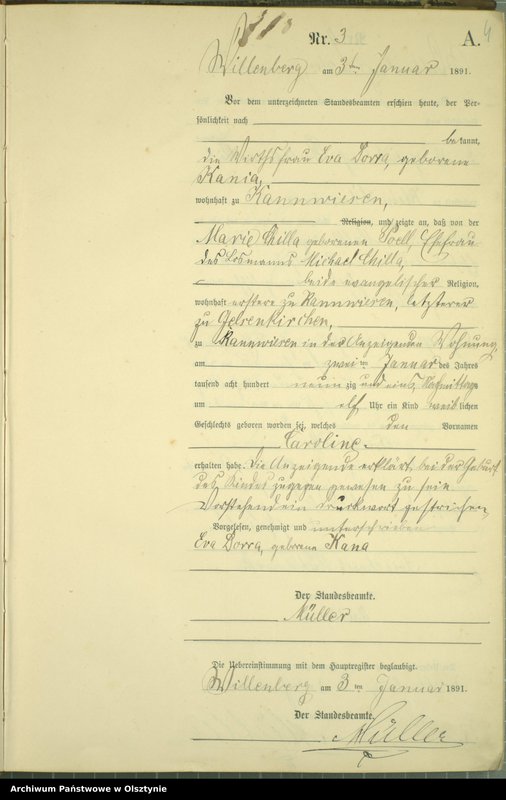 Nr. 3
A. 4
Willenberg am 3ten Januar 1891.
Vor dem unterzeichneten Standesbeamten erschien heute, der Per-
sönlichkeit nach
bekannt,
die Wirthsfrau Eva Dorra, geborene
Kania,
wohnhaft zu Kannwiesen,
Religion, und zeigte an, daß von der
Marie Chilla geborenen Ehefrau
des Losmanns Michael Chilla,
beide evangelischer Religion,
wohnhaft erstere zu Kannwiesen, letzterer
zu Gelsenkirchen,
zu Kannwiesen in der Anzeigenden Wohnung,
am zweiten Januar des Jahres
tausend acht hundert neunzig und eins, Nachmittags
um elf Uhr ein Kind weiblichen
Geschlechts geboren worden sei, welches den Vornamen
Caroline
erhalten habe. Die Anzeigende erklärt, bei der Geburt
des Kindes zugegen gewesen zu sein
Vorstehend ein Druckwort gestrichen,
Vorgelesen, genehmigt und unterschrieben
Eva Dorra, geborene Kana
Der Standesbeamte.
Müller
Die Uebereinstimmung mit dem Hauptregister beglaubigt.
Willenberg am 3ten Januar 1891.
Der Standesbeamte.
Müller
Archiwum Państwowe w Olsztynie